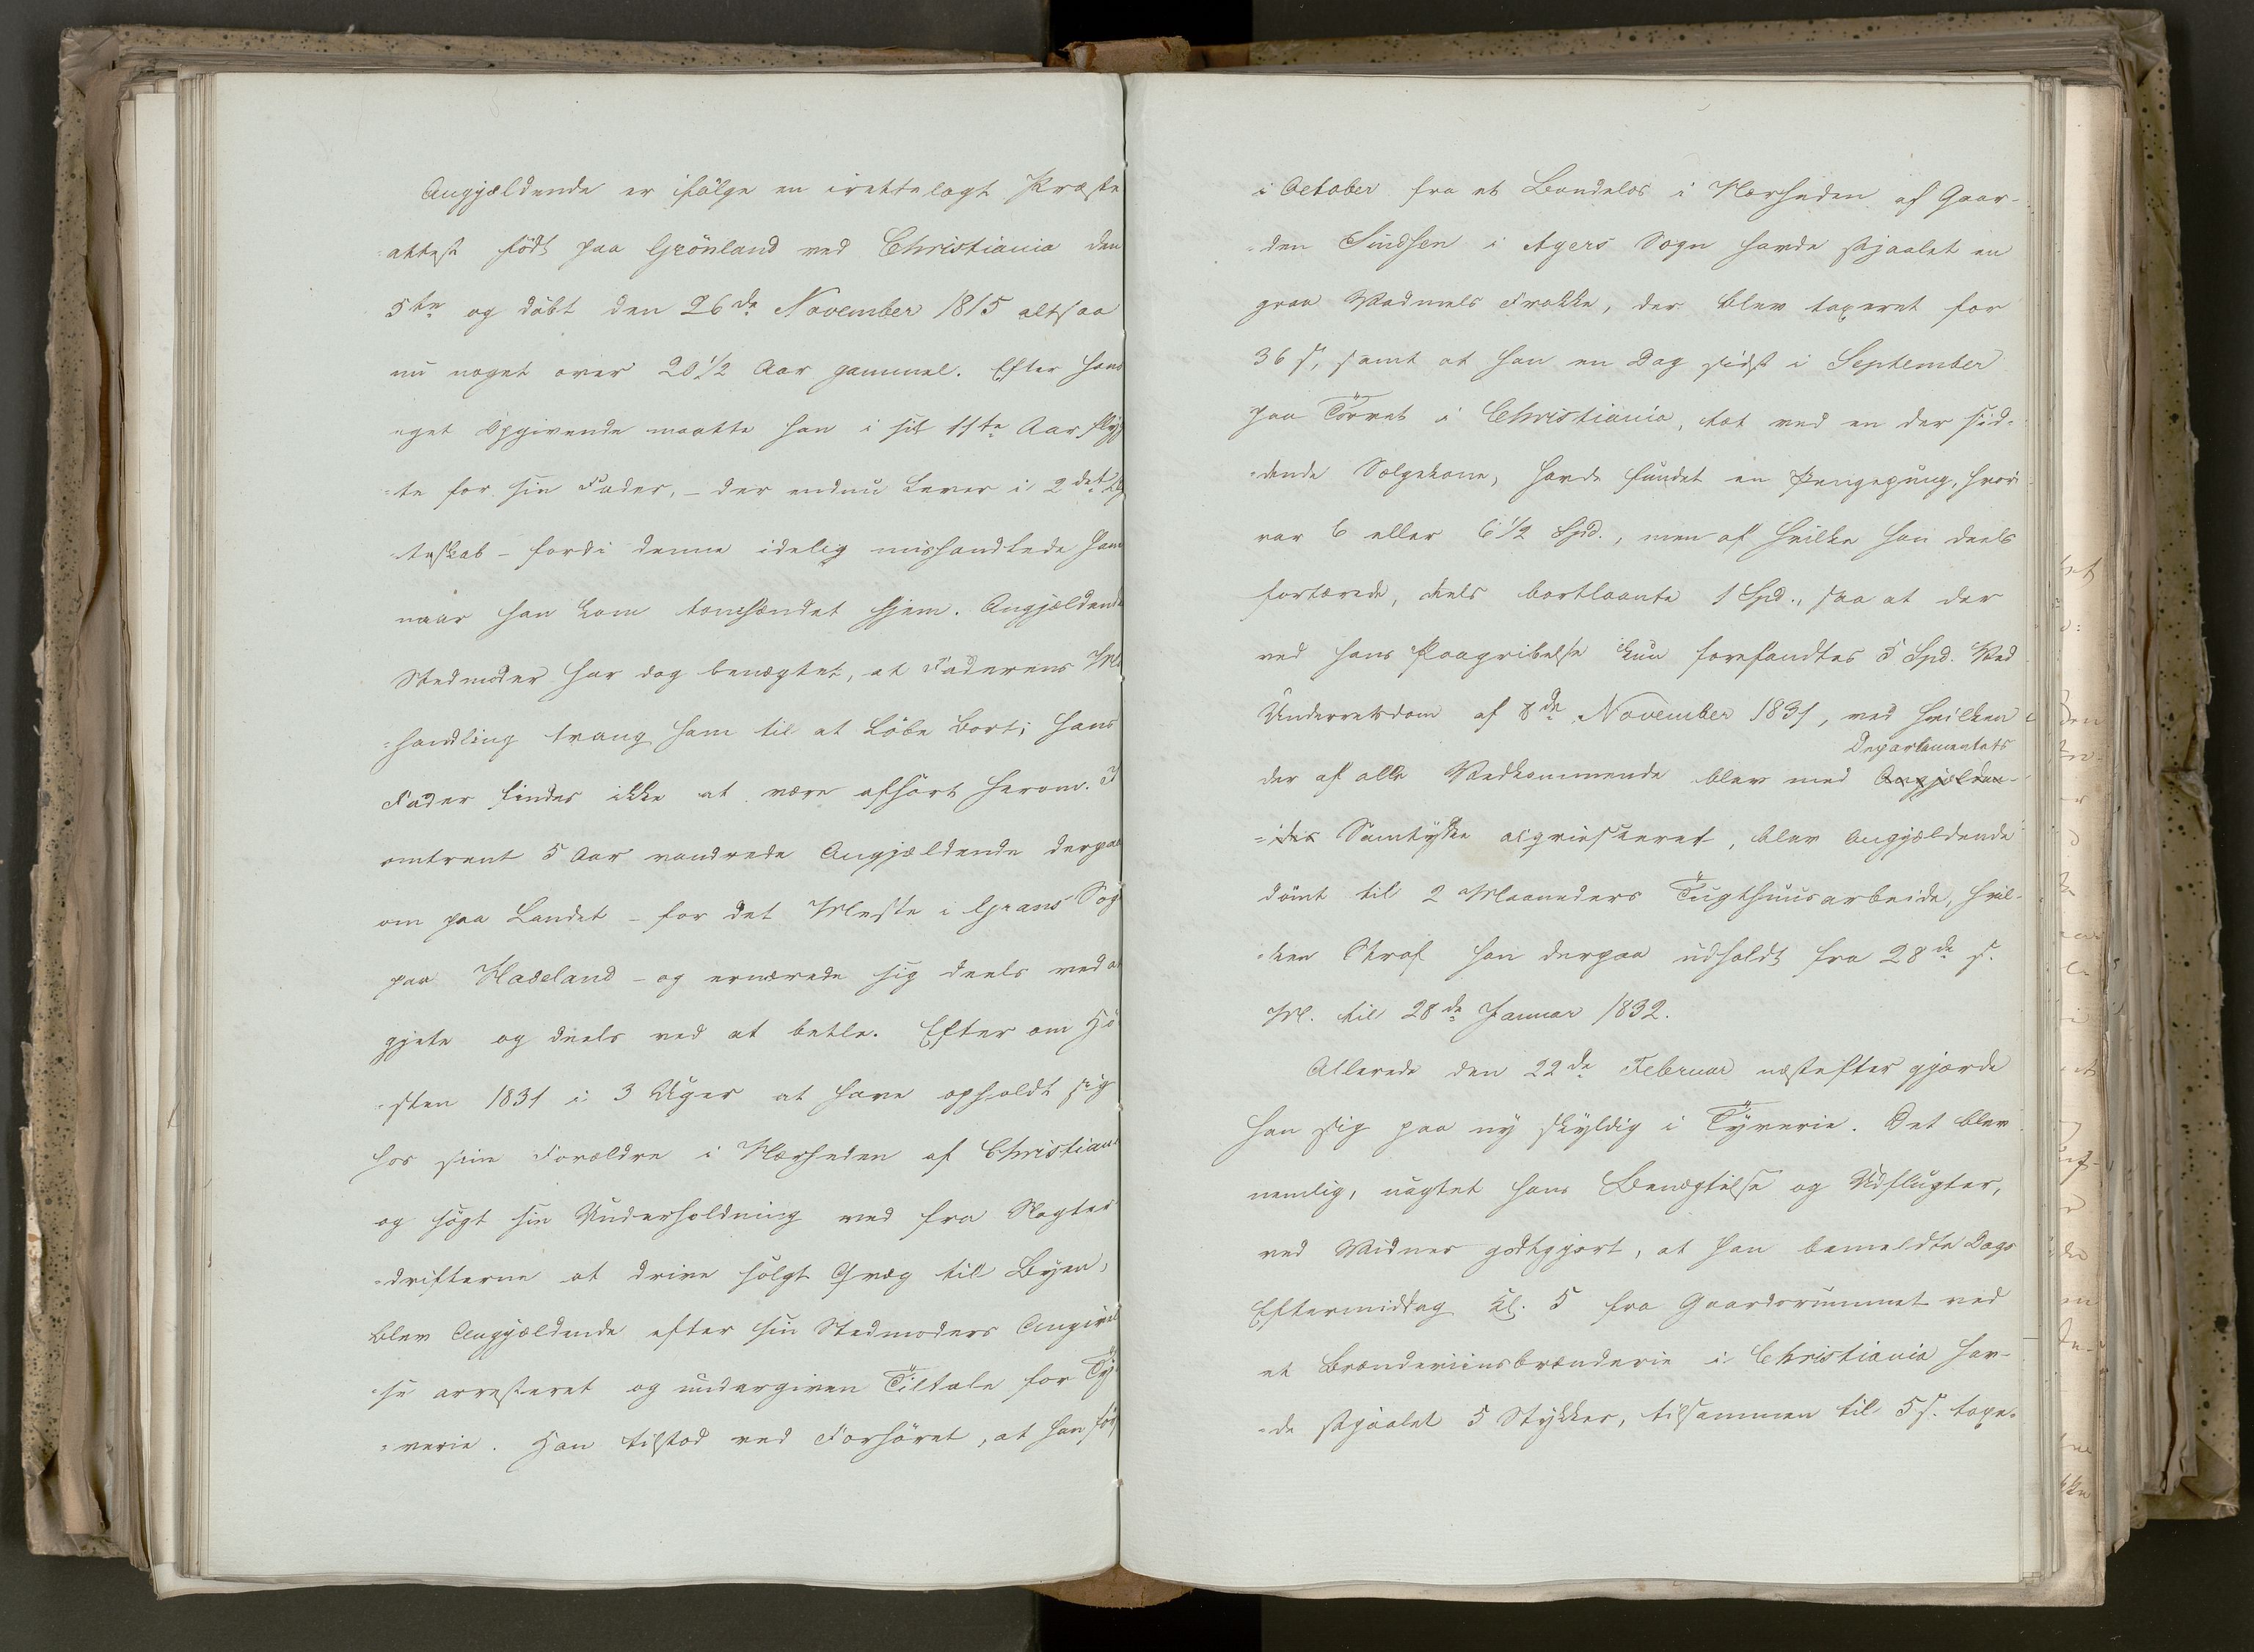 Angjældende er ifølge en irettelagt Præste
=attest født paa Grönland ved Christiania den
5te og döbt den 26de November 1815 altsaa
nu noget over 20 1/2 Aar gammel. Efter hans
eget Opgivende maatte han i sit 11te Aar flyg
=te for sin Fader, – der endnu lever i 2det Æg
=teskab – fordi denne idelig mishandlede ham
naar han kom tomhændet hjem. Angjældende
Stedmoder har dog benægtet, at Faderens Mis
=handling tvang ham til at löbe bort; hans
Fader findes ikke at være afhört herom. I
omtrent 5 Aar vandrede Angjældende derpaa
om paa Landet – for det Meste i Grans Sog
paa Hadeland – og ernærede sig deels ved at
gjete og deels ved at betle. Efter om Hö
=sten 1831 i 3 Uger at have opholdt sig
hos sine Forældre i Nærheden af Christiania
og sögt sin Underholdning ved fra Slagter
=drifterne at drive solgt Qvæg til Byen,
blev Angjældende efter sin Stedmoders Angivel
=se arresteret og undergiven Tiltale for Ty
=verie. Han tilstod ved Forhöret, at han först
i October fra et Bondelæs i Nærheden af Gaar-
=den Sindsen i Agers Sogn havde stjaalet en
graa Vadmels Frakke, der blev taxeret for
36 s, samt at han en Dag sidst i September
paa Torvet i Christiania, tæt ved en der sid=
=dende Sælgekone, havde fundet en Pengepung, hvori
var 6 eller 6 1/2 Spd., men af hvilke han deels
fortærede, deels bortlaante 1 Spd., saa at der
ved hans Paagribelse kun forefandtes 5 Spd. Ved
Underretsdom af 8de November 1831, ved hvilken
Departementets
der af alle Vedkommende blev med Angjælden-
=des Samtykke acqviesceret, blev Angjældende
dömt til 2 Maaneders Tugthuusarbeide, hvil-
=ken Straf han derpaa udholdt fra 28de s.
M. til 28de Januar 1832.
Allerede den 22de Februar næstefter gjorde
han sig paa ny skyldig i Tyverie. Det blev
nemlig, uagtet hans Benægtelse og Udflugter,
ved Vidner godtgjort, at han bemeldte Dags
Eftermiddag Kl. 5 fra Gaardsrummet ved
et Brændeviinsbrænderie i Christiania hav-
=de stjaalet 5 Stykker, tilsammen til 5 s. taxe=